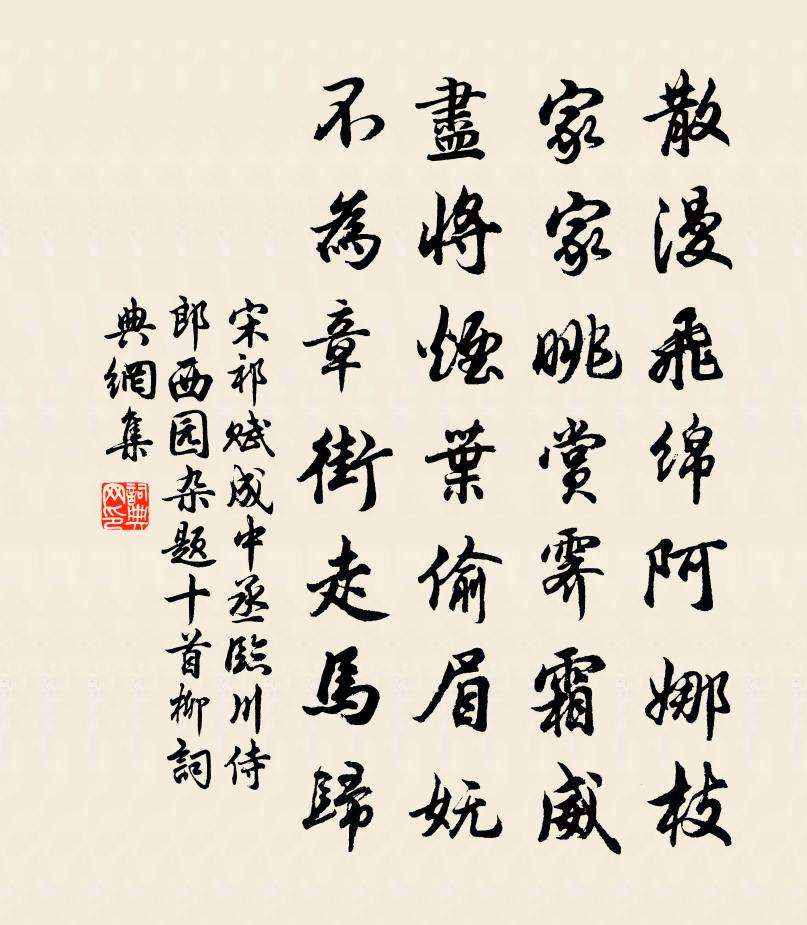 散漫飛绵阿娜枝
家家眺赏霁霜威
盡將煙葉偷眉妩
不為章街走馬歸
宋祁赋成中丞臨川侍
郎西园杂题十首柳詞
典網集
詞典网印